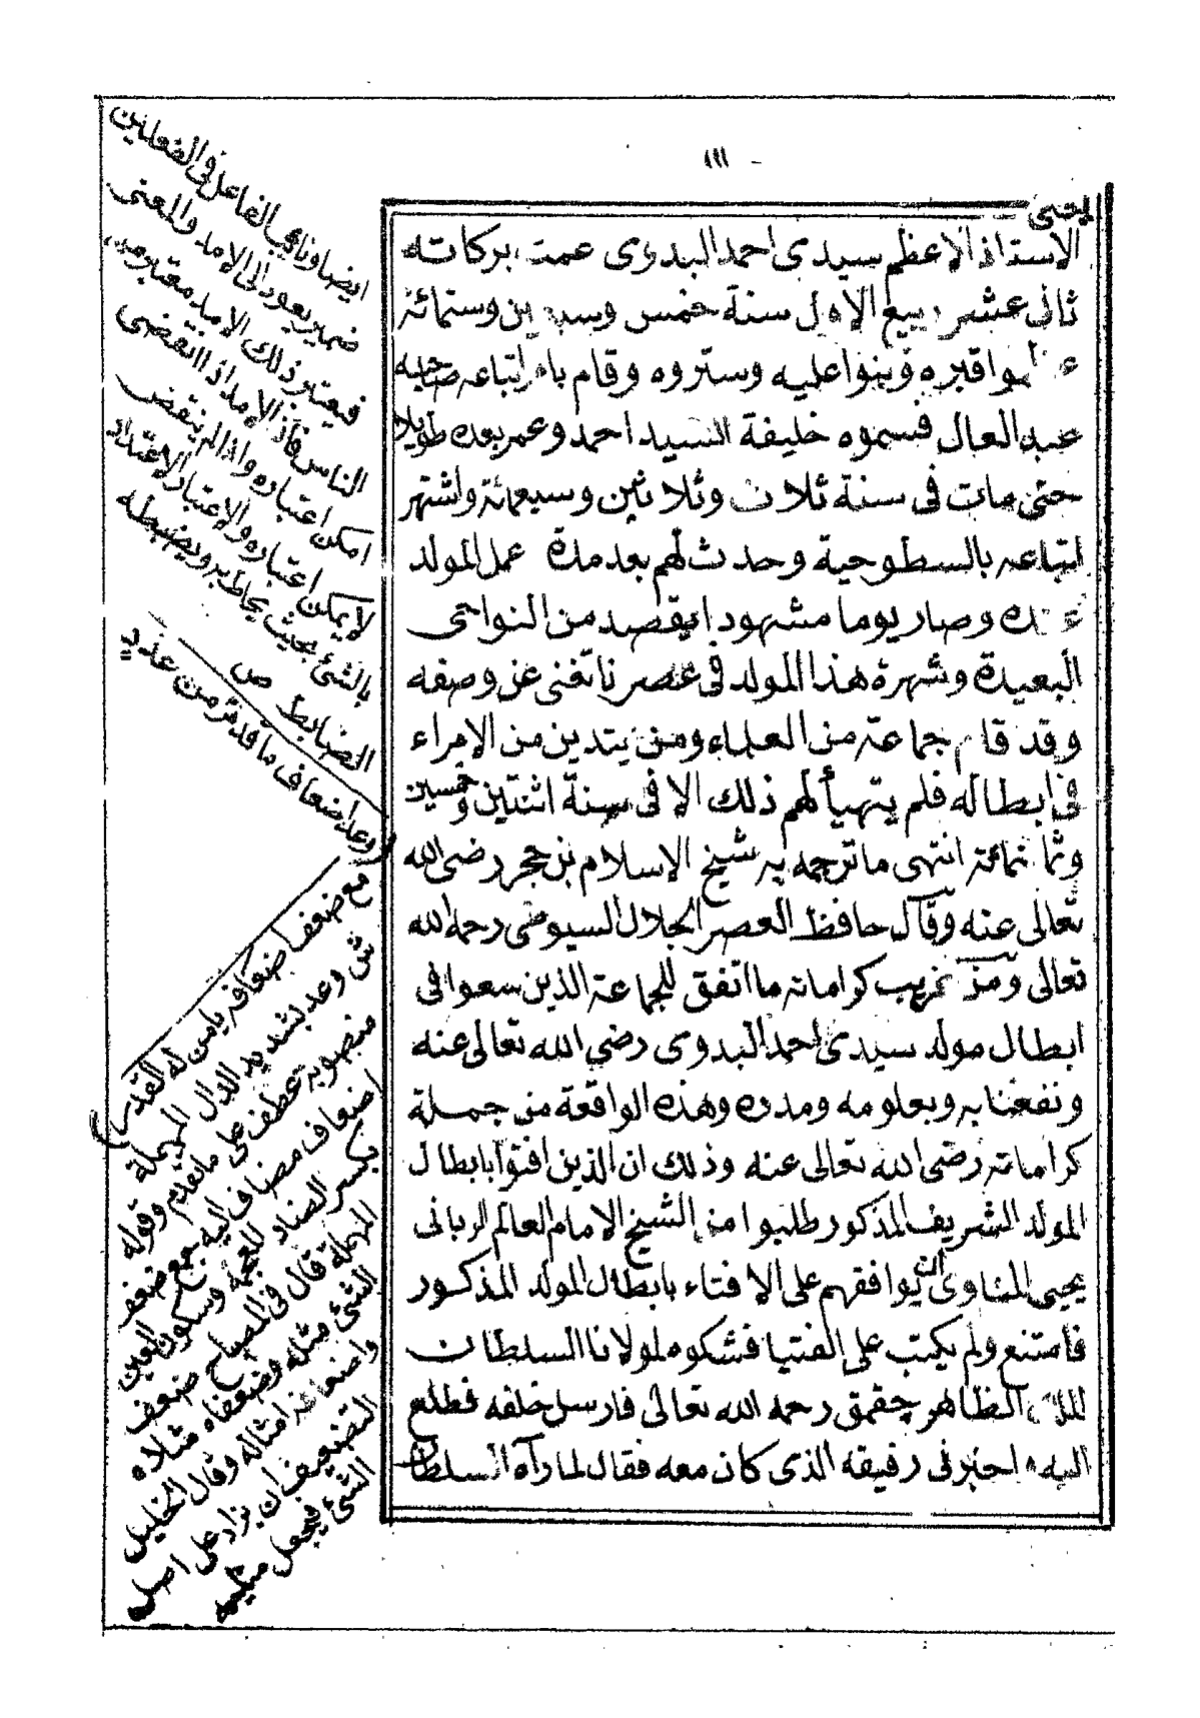 ١٩١
يعنى
الاستاذ الاعظم سيدى احمد البدوى عمت بركاته
ثانى عشر ربيع الاول سنة خمس وسبعين وستمائة
عظموا قبره وبنوا عليه وستروه وقام بامر اتباعه صاحبه
عبد العال فسموه خليفة السيد احمد وعمر بعده طويلا
حتى مات فى سنة ثلاث وثلاثين وسبعمائة واشتهر
اتباعه بالسطوحية وحدث لهم بعد مدة عمل المولد
عنده وصار يوما مشهودا يقصد من النواحى
البعيدة وشهرة هذا المولد فى عصرنا تغنى عن وصفه
وقد قام جماعة من العلماء ومن يتدين من الامراء
فى ابطاله فلم يتهيأ لهم ذلك الا فى سنة اثنتين وخمسين
وثمانمائة انتهى ما ترجمه به شيخ الاسلام بن حجر رضى الله
تعالى عنه وقال حافظ العصر الجلال السيوطى رحمه الله
تعالى ومن غريب كراماته ما اتفق للجماعة الذين سعوا فى
ابطال مولد سيدى احمد البدوى رضي الله تعالى عنه
ونفعنا به وبعلومه ومدده وهذه الواقعة من جملة
كراماته رضى الله تعالى عنه وذلك ان الذين افتوا بابطال
المولد الشريف المذكور طلبوا من الشيخ الامام العالم الربانى
يحيى المناوى ان يوافقهم على الافتاء بابطال المولد المذكور
فامتنع ولم يكتب على الفتيا فشكوه لمولانا السلطان
الملك الظاهر چقمق رحمه الله تعالى فارسل خلفه فطلع
اليه اخبرنى رفيقه الذى كان معه فقال لما رآه السلطان
ايضا ونائب الفاعل فى الفعلين
ضمير يعود الى الامد والمعنى
فيعتبر ذلك الامد معتبر من
الناس فان الامد اذا انقضى
امكن اعتباره واذا لم ينقض
لا يمكن اعتباره والاعتبار الاعتداد
بالشئ بحيث يحاط به ويضبطه
الضابط ص
وعد اضعاف ما قد مر من عدد
مع ضعف اضعافه يا من له القدر
ش وعد بتشديد الدال المهملة
منصوبة عطف على ما تقدم وقوله
اضعاف مضاف اليه جمع ضعف
بكسر الضاد المعجمة وسكون العين
المهملة قال فى المصباح ضعف
الشئ مثله وضعفاه مثلاه
واضعافه امثاله وقال الخليل
التضعيف ان يزاد على اصل
الشئ فيجعل مثليه